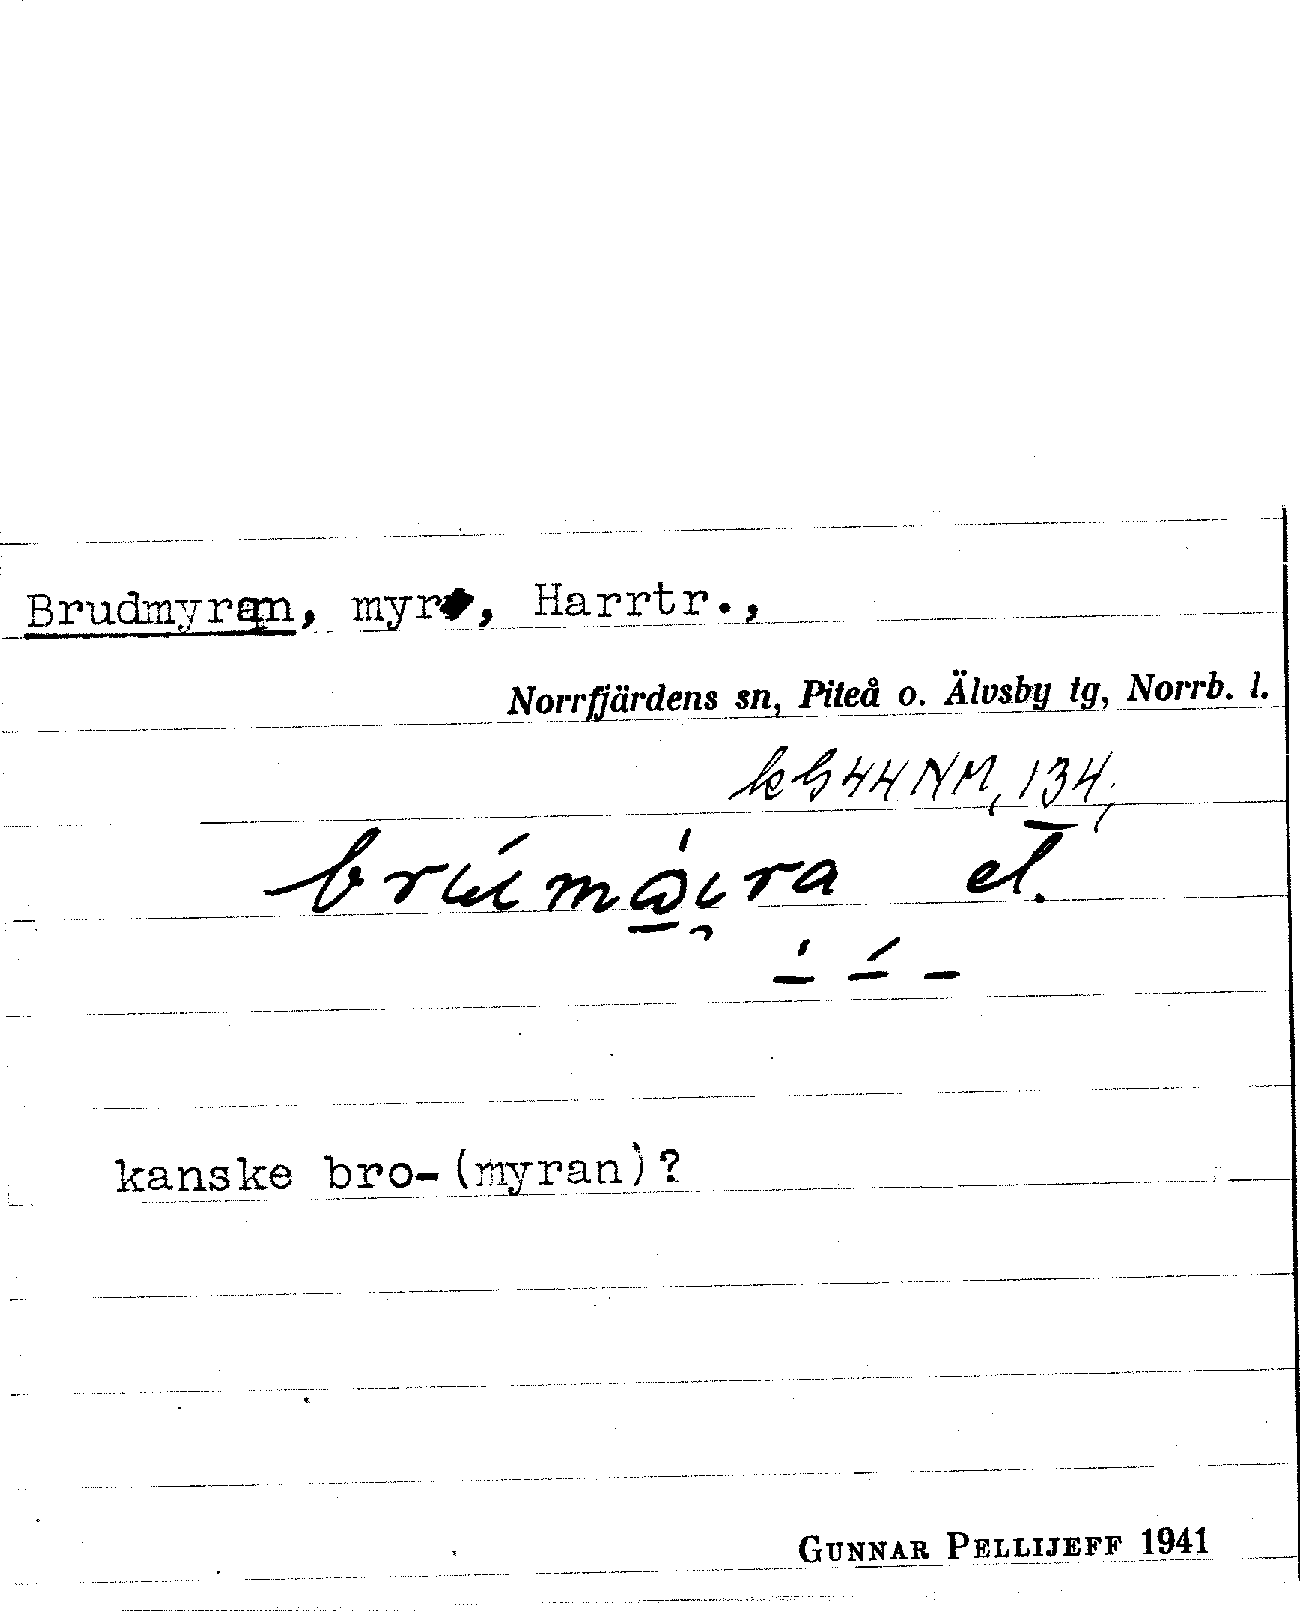 Brudmyran, myr, Harrtr.,
Norrfjärdens sn, Piteå o. Älvsby tg, Norrb. l.
134,
el.
kanske bro-(myran)?
GUNNAR PELLIJEFF 1941